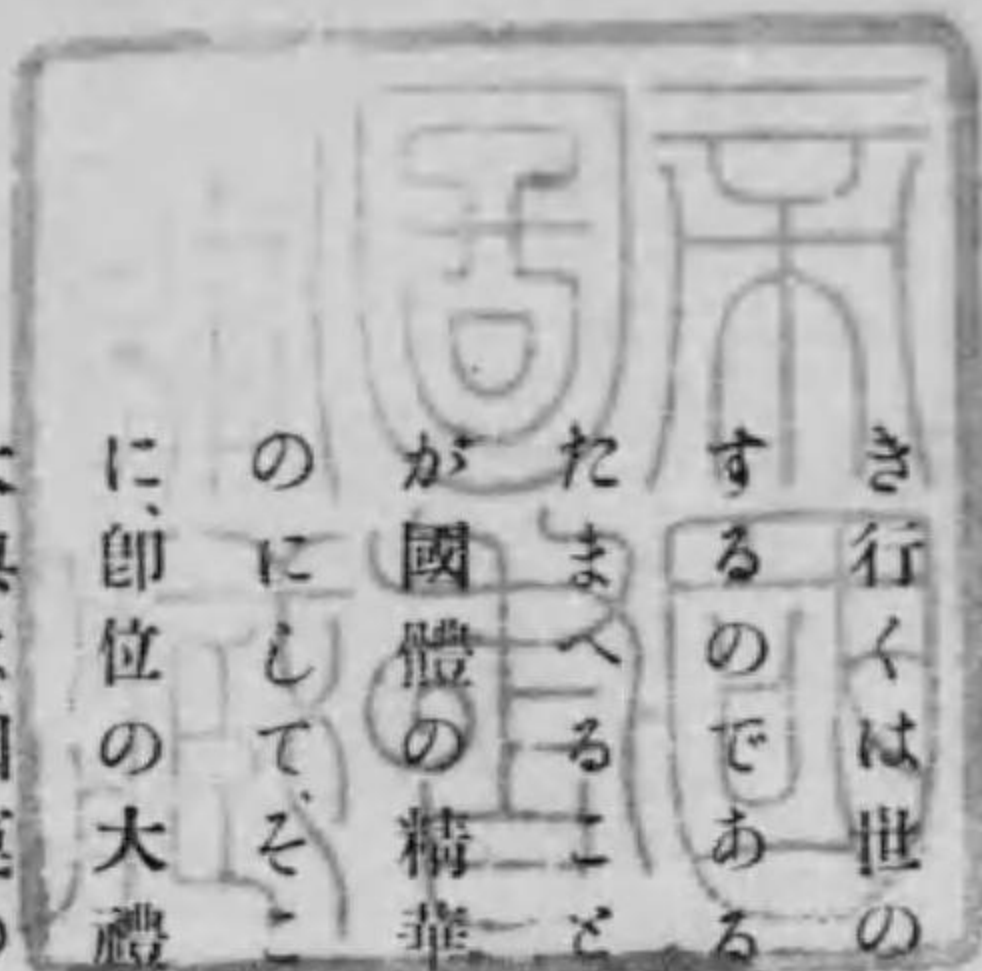 き行くは世の
するのである
たまへること
が國體の精華
のにして、そこ
に、卽位の大禮
帝國
圖書